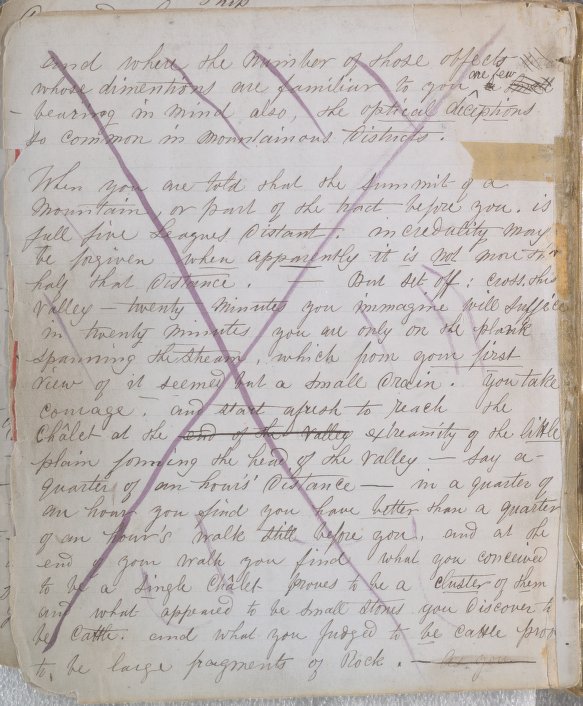 and where the number of those objects
whose dimentions are familiar to you are few
bearing in mind also, the optical deceptions
so common in Mountainous Districts.
When you are told that the summit of a
Mountain, or part of the tract before you. is
full five Leagues Distant. incredulity may
be forgiven when apparently it is not more than
half that Distance. — But set off; cross this
Valley — twenty Minutes you immagine will suffice
in twenty minutes you are only on the plank
spanning the stream, which from your first
view of it seemed but a small Drain. You take
courage. and start afresh to reach the
Châlet at the end of the Valley extreamity of the little
plain forming the head of the Valley — say a
quarter of an hours' Distance — in a quarter of
an hour you find you have better than a quarter
of an hour's walk still before you, and at the
end of your walk you find what you conceived
to be a single Châlet proves to be a cluster of them
and what appeared to be small stones you Discover to
be Cattle. and what you Judged to be cattle prov
to be large fragments of Rock. — As you